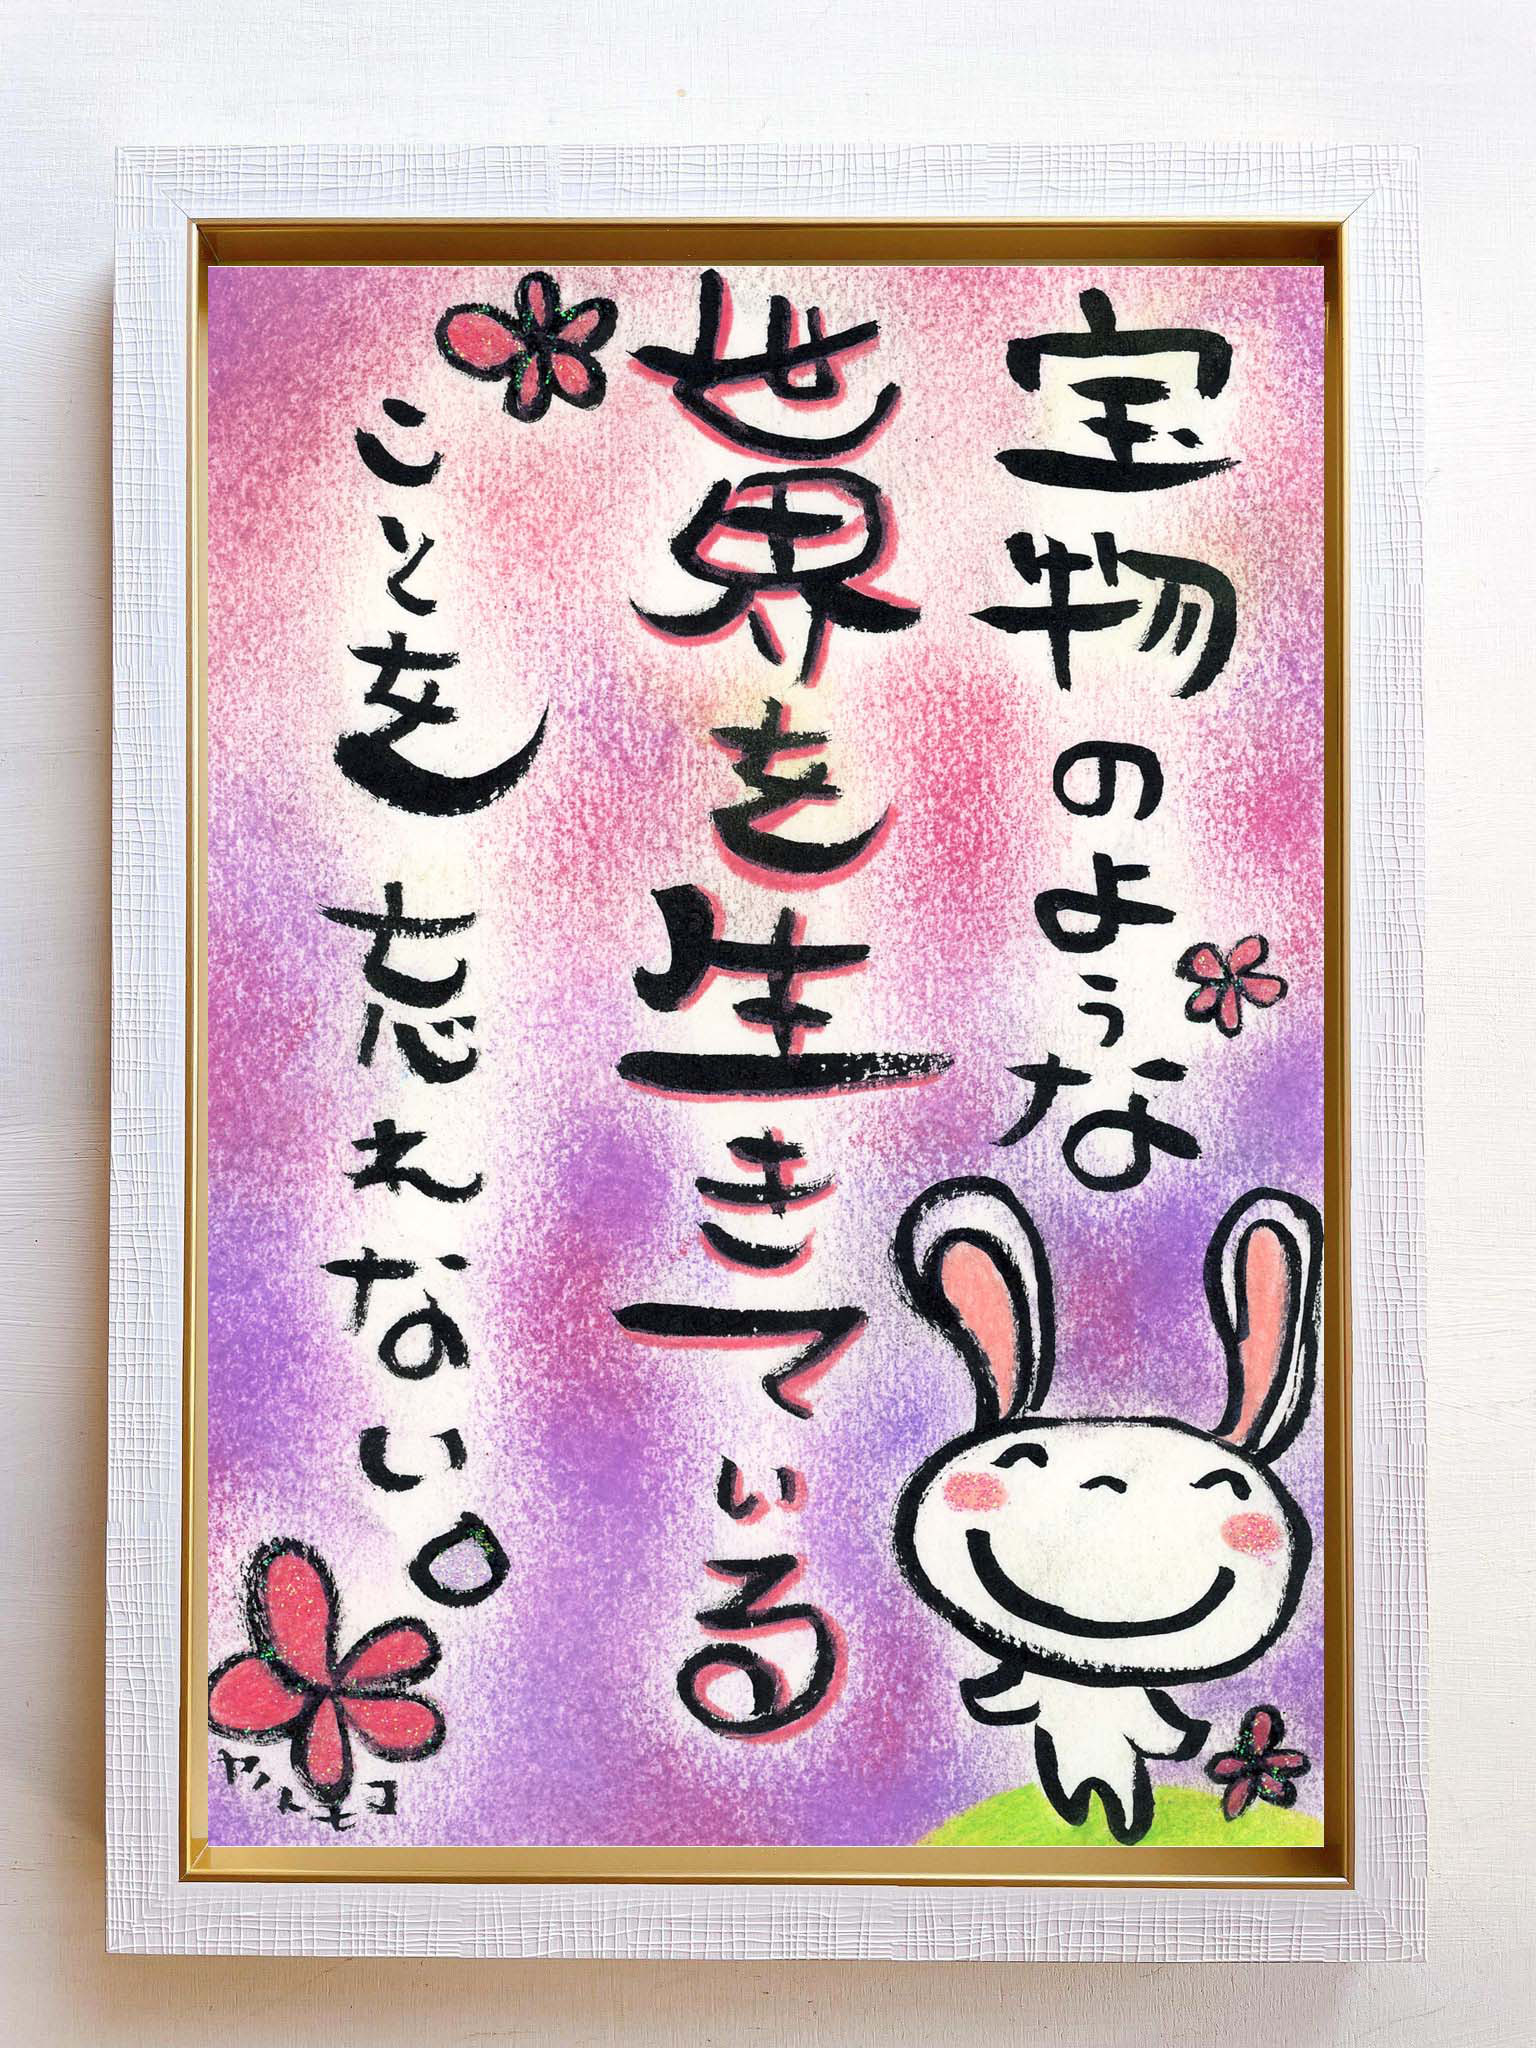 宝物のような
世界を生きている
ことを忘れない。
ヤノトモコ